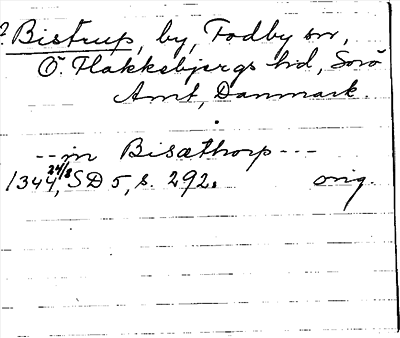 ? Bistrup, by, Fodby sn,
Ö. Flakkebjergs hd, Sorö
Amt, Danmark.
--in Bisæthorp---
1344 24/8, SD 5, s. 292. orig.